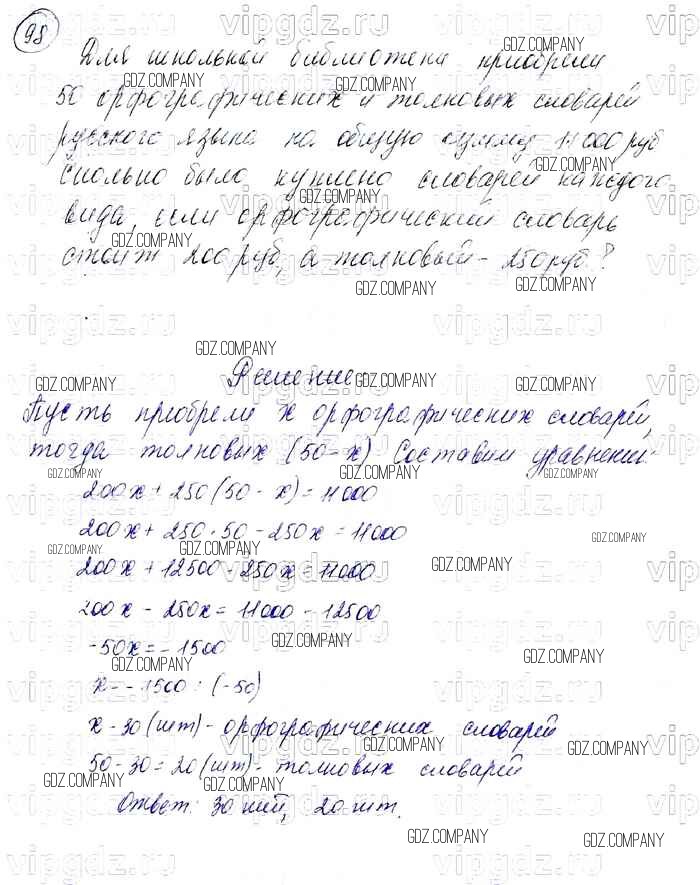 98
Для школьной библиотеки приобрели
50 орфографических и толковых словарей
русского языка на общую сумму 11000 руб
Сколько было куплено словарей каждого
вида, если орфографический словарь
стоит 200 руб, а толковый - 250 руб?
Решение
Пусть приобрели х орфографических словарей,
тогда толковых (50-х) Составим уравнение:
200х + 250(50 - х) = 11000
200х + 250·50 - 250х = 11000
200х + 12500 - 250х = 11000
200х - 250х = 11000 - 12500
-50х = - 1500
х = - 1500 : (-50)
х - 30 (шт) - орфографических словарей
50-30 = 20 (шт) - толковых словарей
Ответ: 30 шт, 20 шт.
vipgdz.ru
GDZ.COMPANY